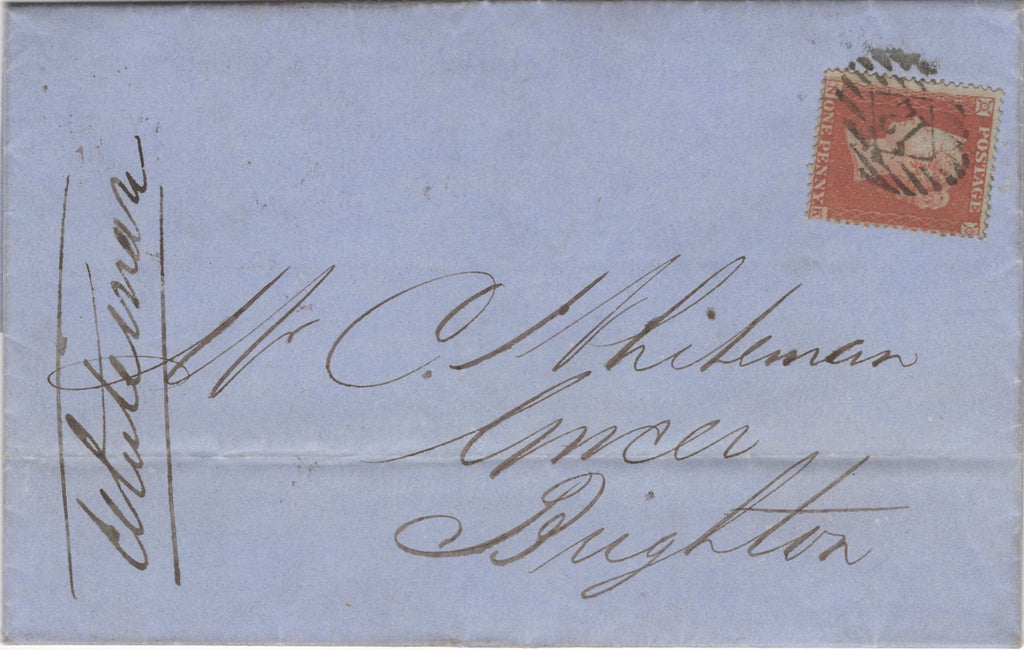 Mr C. Whiteman
Grocer
Brighton
Whiteman
POSTAGE
ONE PENNY